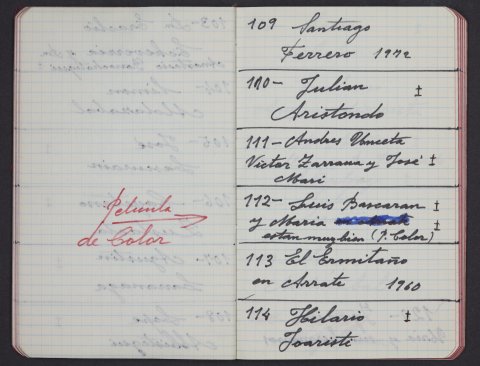 Pelicula
de Color
109 Santiago
Ferrero 1972
110- Julian ‡
Aristondo
111- Andres Unceta
Victor Zarraua y José ‡
Mari
112- Luis Bascaran ‡
y Maria ‡
estan muy bien (P. Color)
113 El Ermitaño
en Arrate 1960
114 Hilario ‡
Joaristi